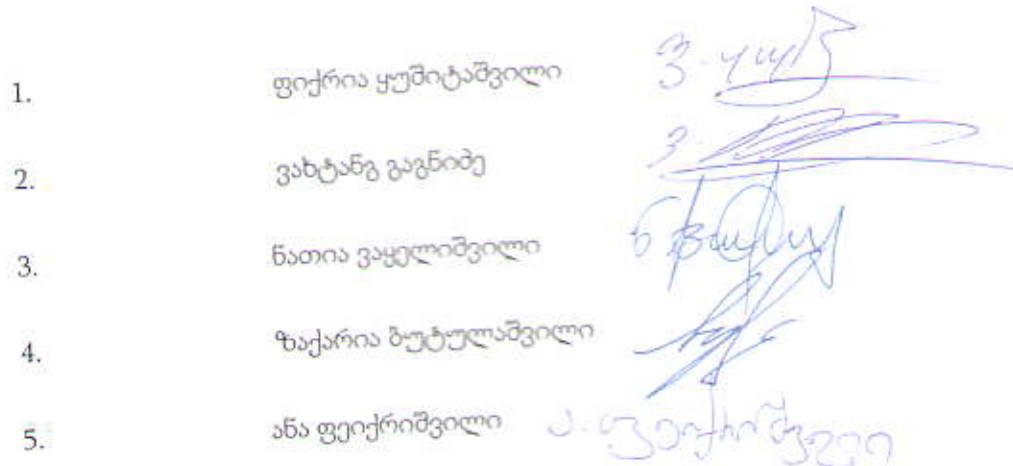 1. ფიქრია ყუშიტაშვილი
2. ვახტანგ გაგნიძე
3. ნათია ვაყელიშვილი
4. ზაქარია ბუტულაშვილი
5. ანა ფეიქრიშვილი ა. ფეიქრიშვილი